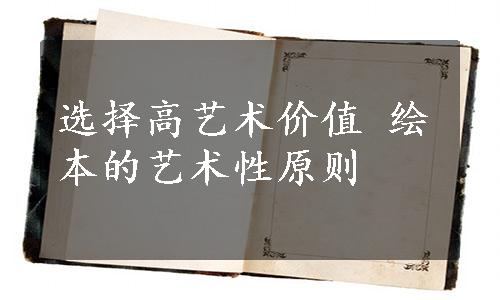 选择高艺术价值 绘
本的艺术性原则